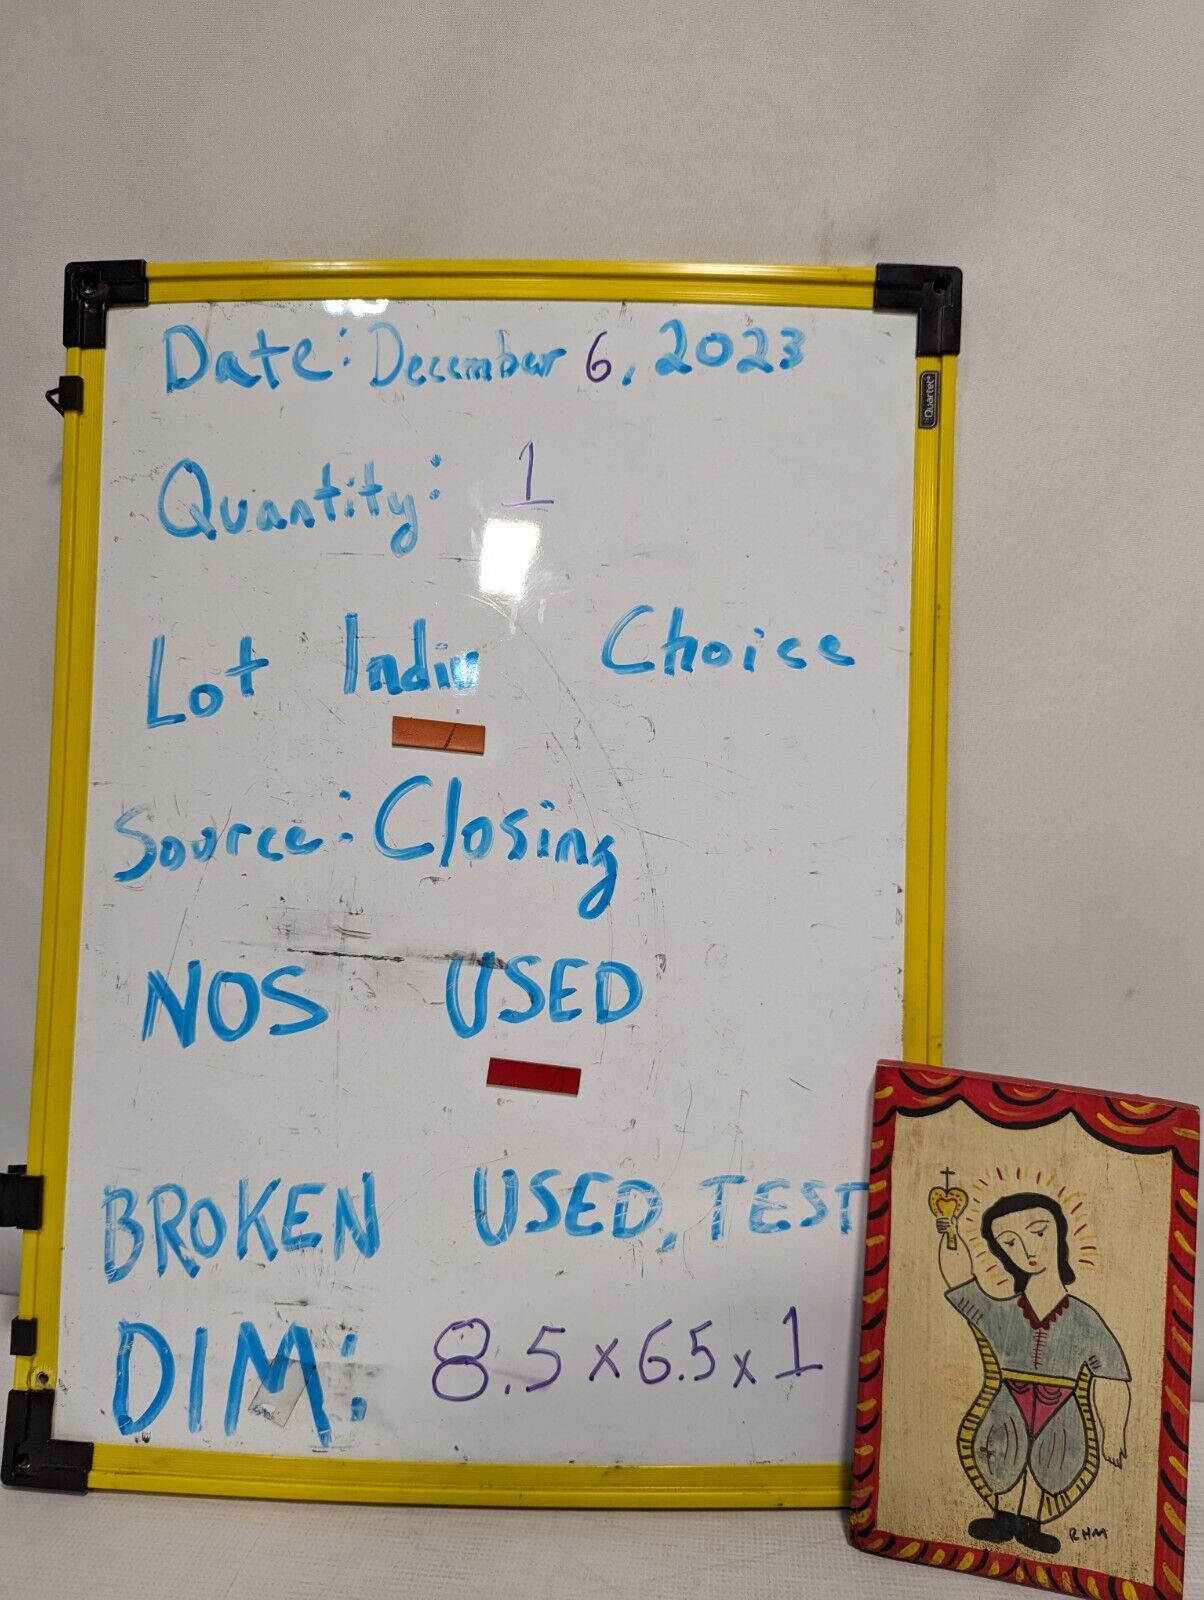 Date: December 6, 2023
Quartet
Quantity: 1
Lot Indiv Choice
Source: Closing
NOS USED
BROKEN USED, TEST
DIM: 8.5 x 6.5 x 1
RHM